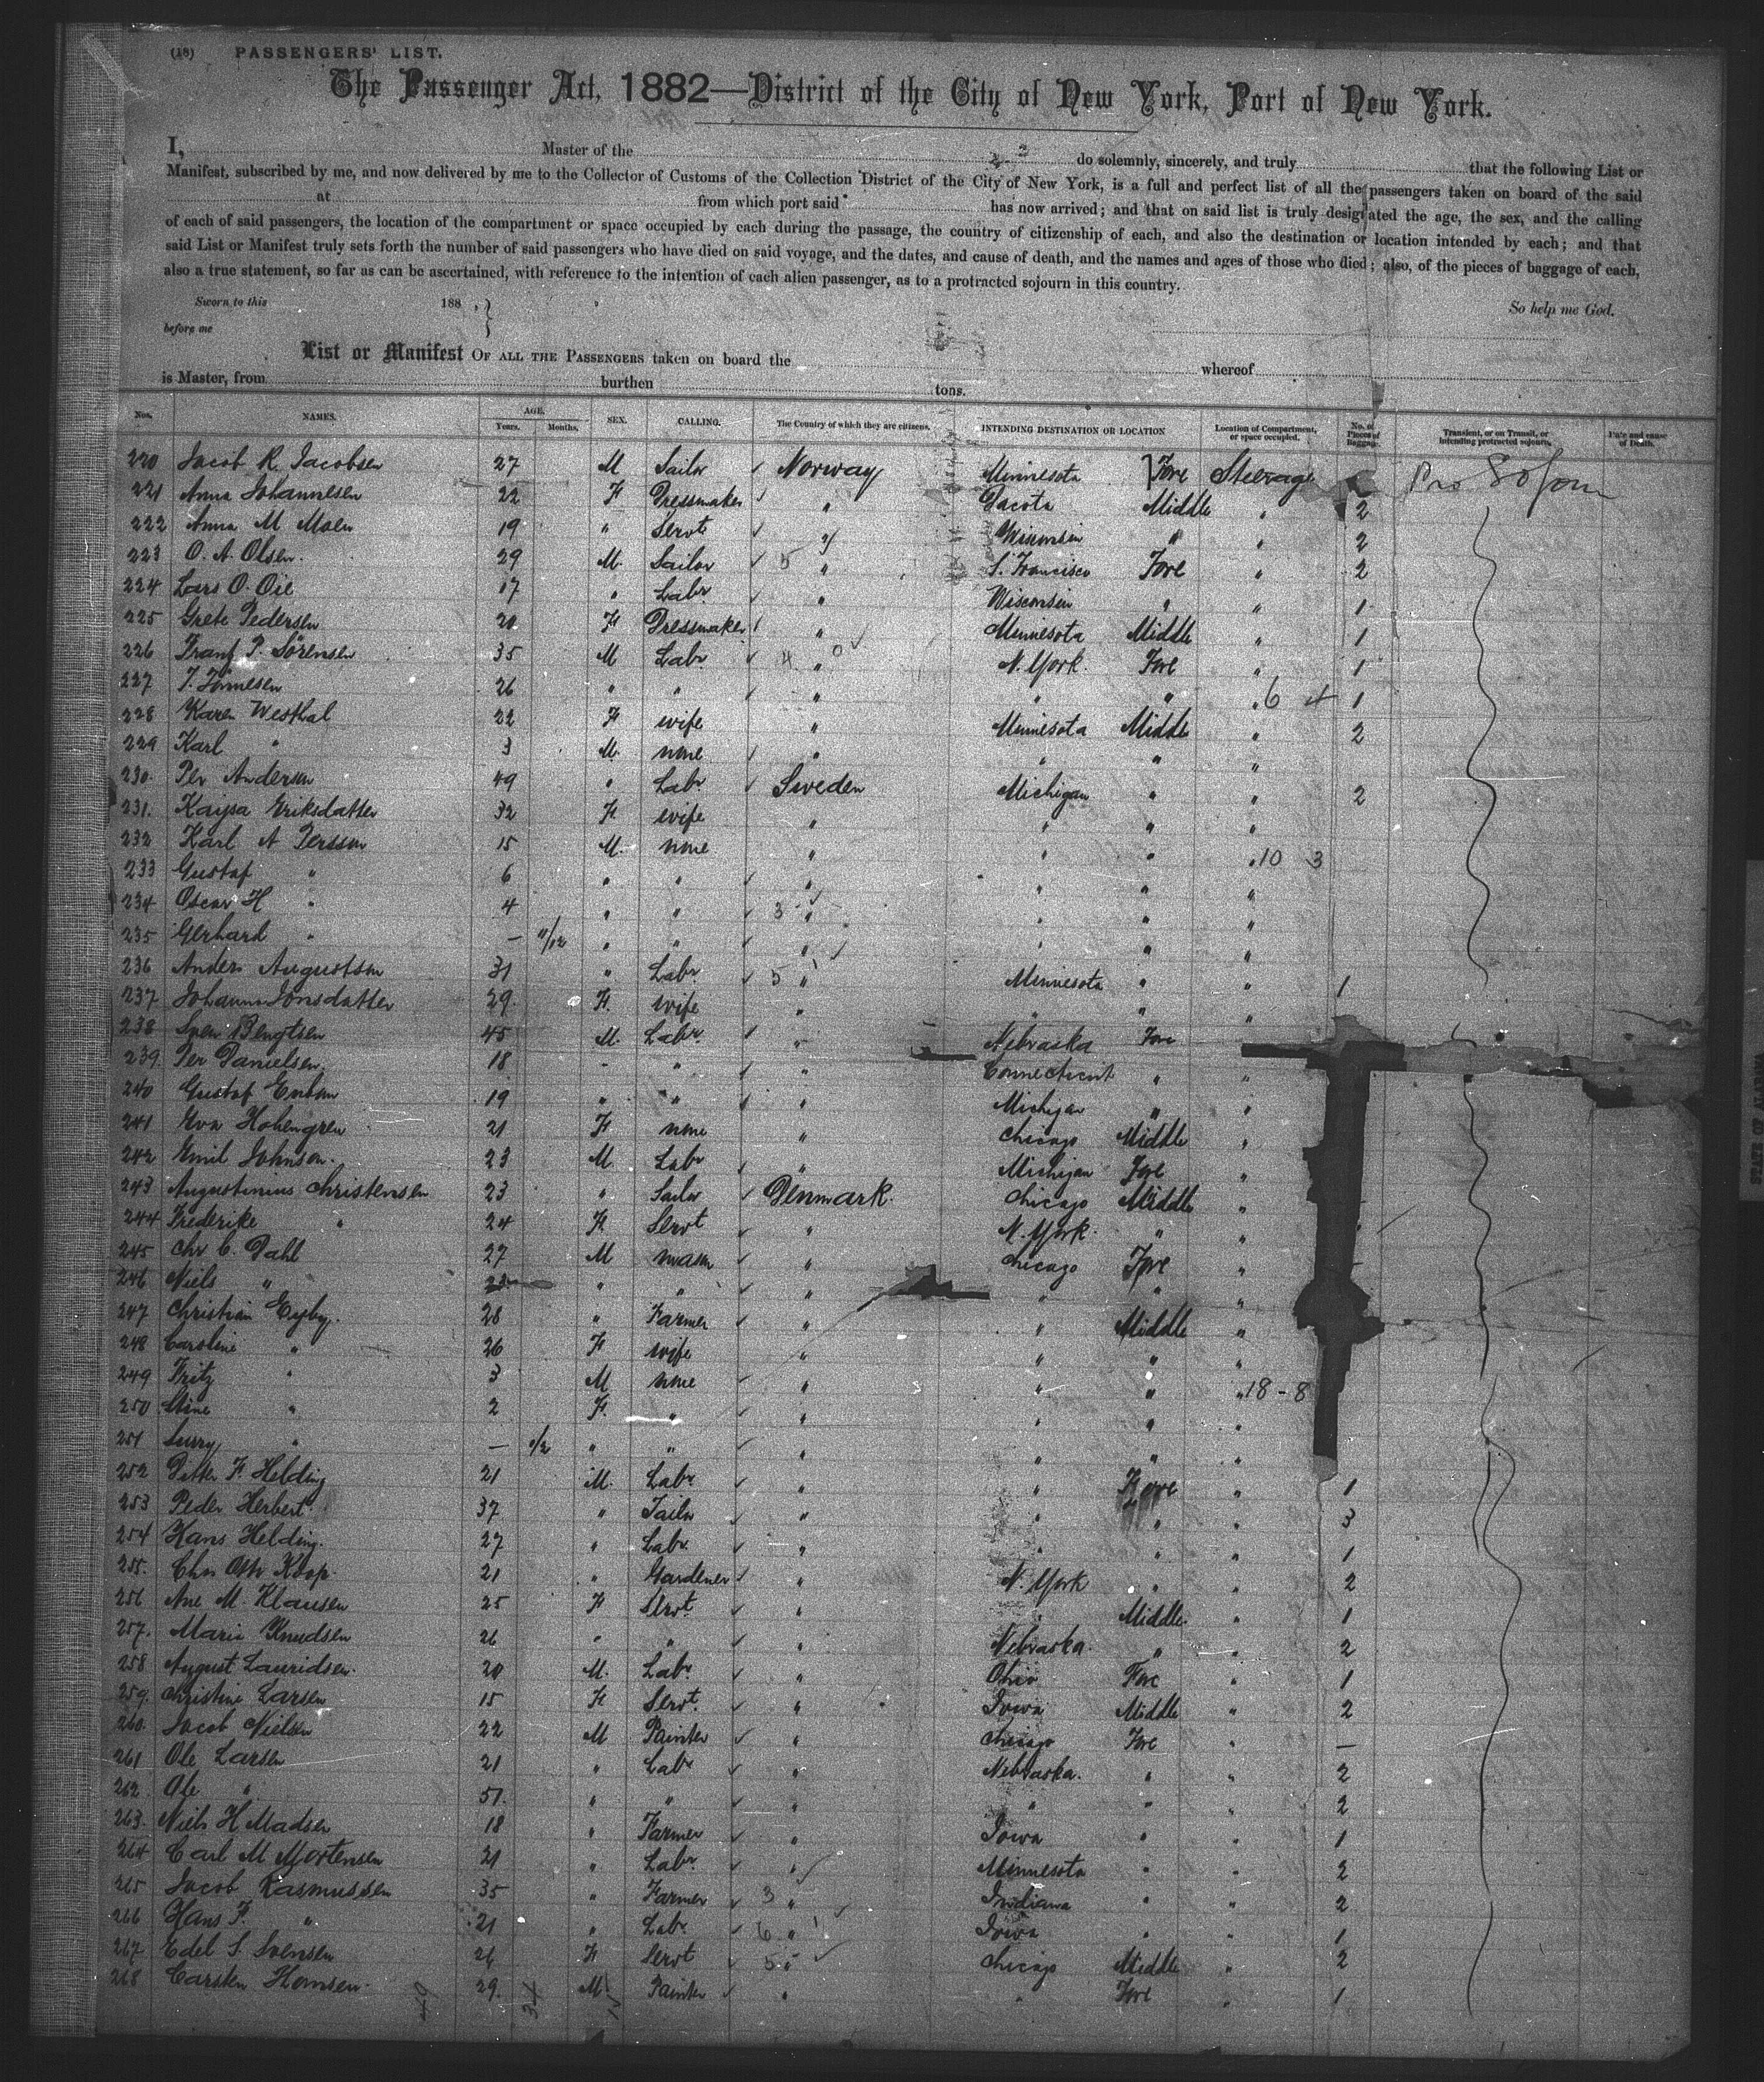 (18) PASSENGERS' LIST.
The Passenger Act, 1882—District of the City of New York, Port of New York.
I, Master of the do solemnly, sincerely, and truly that the following List or
Manifest, subscribed by me, and now delivered by me to the Collector of Customs of the Collection District of the City of New York, is a full and perfect list of all the passengers taken on board of the said
at from which port said has now arrived; and that on said list is truly designated the age, the sex, and the calling
of each of said passengers, the location of the compartment or space occupied by each during the passage, the country of citizenship of each, and also the destination or location intended by each; and that
said List or Manifest truly sets forth the number of said passengers who have died on said voyage, and the dates, and cause of death, and the names and ages of those who died; also, of the pieces of baggage of each,
also a true statement, so far as can be ascertained, with reference to the intention of each alien passenger, as to a protracted sojourn in this country.
Sworn to this 188 , } So help me God.
before me
List or Manifest OF ALL THE PASSENGERS taken on board the whereof
is Master, from burthen tons.
Nos. NAMES. AGE. Years. Months. SEX. CALLING. The Country of which they are citizens. INTENDING DESTINATION OR LOCATION Location of Compartment, or space occupied. No. of Pieces of Baggage. Transient, or on Transit, or intending protracted sojourn. Date and cause of Death.
220 Jacob R. Jacobsen 27 M Sailor Norway Minnesota Fore Steerage Pro Sojour
221 Anna Johannesen 22 F Dressmaker " Dacota Middle " 2
222 Anna M Moen 19 " Servt " Wisconsin " " 2
223 O. A. Olsen. 29 M. Sailor 5 " S. Francisco Fore " 2
224 Lars O. Oie 17 " Labr " Wisconsin " " 1
225 Grete Pedersen 20 F Dressmaker " Minnesota Middle " 1
226 Franz P. Sörensen 35 M Labr 4 " 0 N. York. Fore " 1
227 T. Tönnesen 26 " " " " " " 6 4 1
228 Karen Westhal 22 F wife " Minnesota Middle " 2
229 Karl " 3 M. none " " " "
230. Per Anderson 49 " Labr Sweden Michigan " " 2
231. Kajsa Eriksdatter 32 F wife " " " "
232 Karl A Persson 15 M. none " " " " 10 3
233 Gustaf " 6 " " " " " "
234 Oscar H " 4 " " 3 " " " "
235 Gerhard " — 11/12 " " " " " "
236 Anders Augustson 31 " Labr 5 " Minnesota " " 1
237 Johanna Jonsdatter 29. F. wife " " " "
238 Sven Bengtsen 45 M. Labr. " Nebraska Fore
239. Per Danielsen 18 " " " Connecticut " "
240 Gustaf 19 " " " Michigan " "
241 Eva Hohengren 21 F none " Chicago Middle "
242 Emil Johnson. 23 M. Labr " Michigan Fore "
243 Augustinius Christensen 23 " Sailor Denmark. Chicago Middle "
244 Frederike " 24 F Servt " N. York. " "
245 Chr C. Dahl 27 M mason " Chicago Fore "
246 Niels " " " " " " "
247 Christian Eyby. 28 " Farmer " " Middle "
248 Caroline " 26 F wife " " " "
249 Fritz " 3 M none " " " " 18 - 8
250 Stine " 2 F. " " " " "
251 " — " " " " " "
252 Peter F. Helding 21 M. Labr " " Fore " 1
253 Peder Herbert. 37 " Tailor " " " " 3
254 Hans Helding. 27 " Labr. " " " " 1
255. Chr. Otto Koop. 21 " Gardener " N. York " " 2
256 Ane M. Klausen 25 F Servt. " " Middle. " 1
257. Marie Knudsen 26 " " " Nebraska. " " 2
258 August Lauridsen. 20 M. Labr. " Ohio Fore " 1
259. Christine Larsen 15 F Servt. " Iowa Middle " 2
260. Jacob Nielsen 22 M Painter " Chicago Fore " —
261 Ole Larsen 21 " Labr " Nebraska. " " 2
262 Ole " 51. " " " " " " 2
263. Niels H Madsen 18 " Farmer " Iowa " " 1
264 Carl M Mortensen 21 " Labr. " Minnesota " " 2
265 Jacob Rasmussen 35 " Farmer 3 " Indiana " " 2
266 Hans F. " 21 " Labr. 6 " Iowa " " 1
267 Edel S. Svensen 26 F Servt 5 " Chicago Middle " 2
268 Carsten Homsen. 29. M Painter " " Fore " 1
49 34